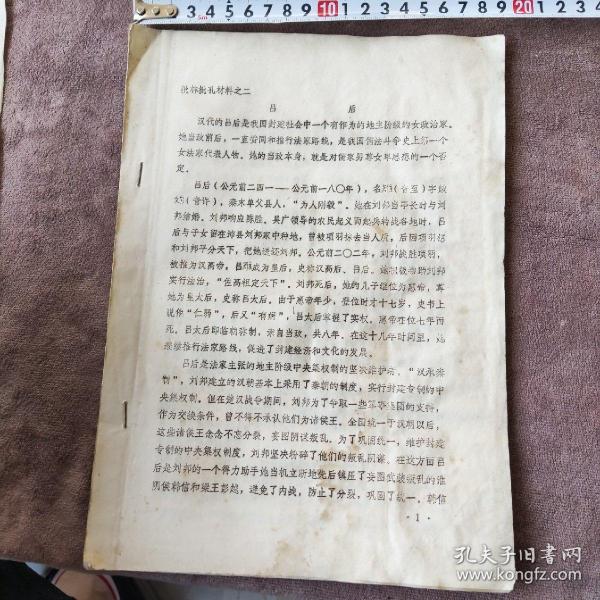 批林批孔材料之二
吕 后
汉代的吕后是我国封建社会中一个有作为的地主阶级的女政治家。
她当政前后，一直赞同和推行法家路线，是我国儒法斗争史上第一个
女法家代表人物。她的当政本身，就是对儒家男尊女卑思想的一个否
定。
吕后（公元前二四一——公元前一八〇年），名雉（音至）字娥
姁（音许），秦末单父县人，“为人刚毅”。她在刘邦当亭长时与刘
邦结婚。刘邦响应陈胜、吴广领导的农民起义而起兵转战各地时，吕
后与子女留在沛县刘邦家中种地，曾被项羽掠去当人质，后因项羽想
和刘邦平分天下，把她送还刘邦。公元前二〇二年，刘邦战胜项羽，
被推为汉高帝。吕雉成为皇后，史称汉高后、吕后。她积极帮助刘邦
实行法治，“佐高祖定天下”。刘邦死后，她的儿子继位为惠帝，尊
她为皇太后，史称吕太后。由于惠帝年少，登位时才十七岁，史书上
说你“仁弱”，后又“有病”，吕太后掌握了实权。惠帝在位七年而
死。吕太后即临朝称制，亲自当政，共八年。在这十几年时间里，她
继续推行法家路线，促进了封建经济和文化的发展。
吕后是法家主张的地主阶级中央集权制的坚决维护者。“汉承秦
制”，刘邦建立的汉朝基本上采用了秦朝的制度，实行封建专制的中
央集权制。但在楚汉战争期间，刘邦为了争取一些军事集团的支持，
作为交换条件，曾不得不承认他们为诸侯王。全国统一于汉朝以后，
这些诸侯王念念不忘分裂，妄图阴谋叛乱。为了巩固统一，维护封建
专制的中央集权制度，刘邦坚决粉碎了他们的叛乱阴谋。在这方面吕
后是刘邦的一个得力助手她当机立断地先后镇压了妄图武装叛乱的淮
阴侯韩信和梁王彭越，避免了内战，防止了分裂，巩固了统一。韩信
·1·
孔夫子旧书网
www.kongfz.com